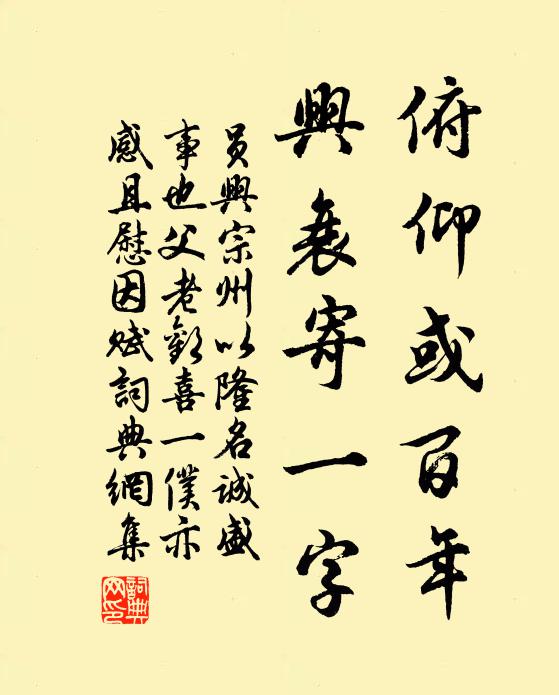 俯仰或百年
興衰寄一字
員興宗州以隆名誠盛
事也父老歡喜一僕亦
感且慰因賦詞典網集
詞典網印